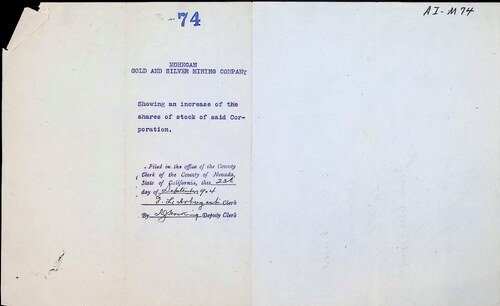 74
A I - M 74
MOHEGAN
GOLD AND SILVER MINING COMPANY
Showing an increase of the
shares of stock of said Cor-
poration.
Filed in the office of the County
Clerk of the County of Nevada,
State of California, this
day of September 1904
Clerk
By Deputy Clerk